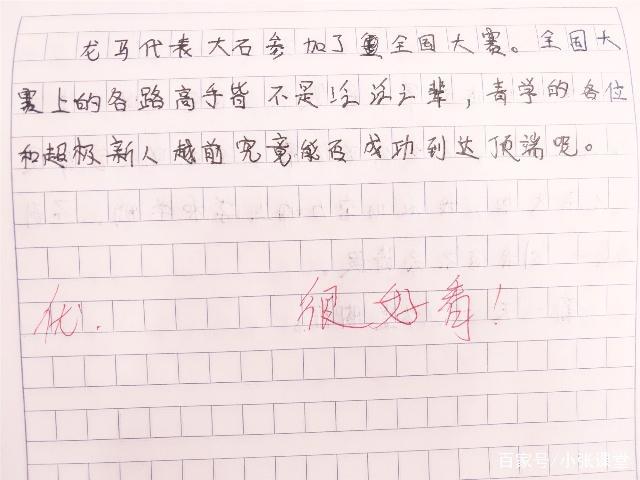 龙马代表大石参加了全国大赛。全国大
赛上的各路高手皆不是泛泛之辈，青学的各位
和超极新人越前究竟能否成功到达顶端呢。
优.
很好看！
百家号/小张课堂